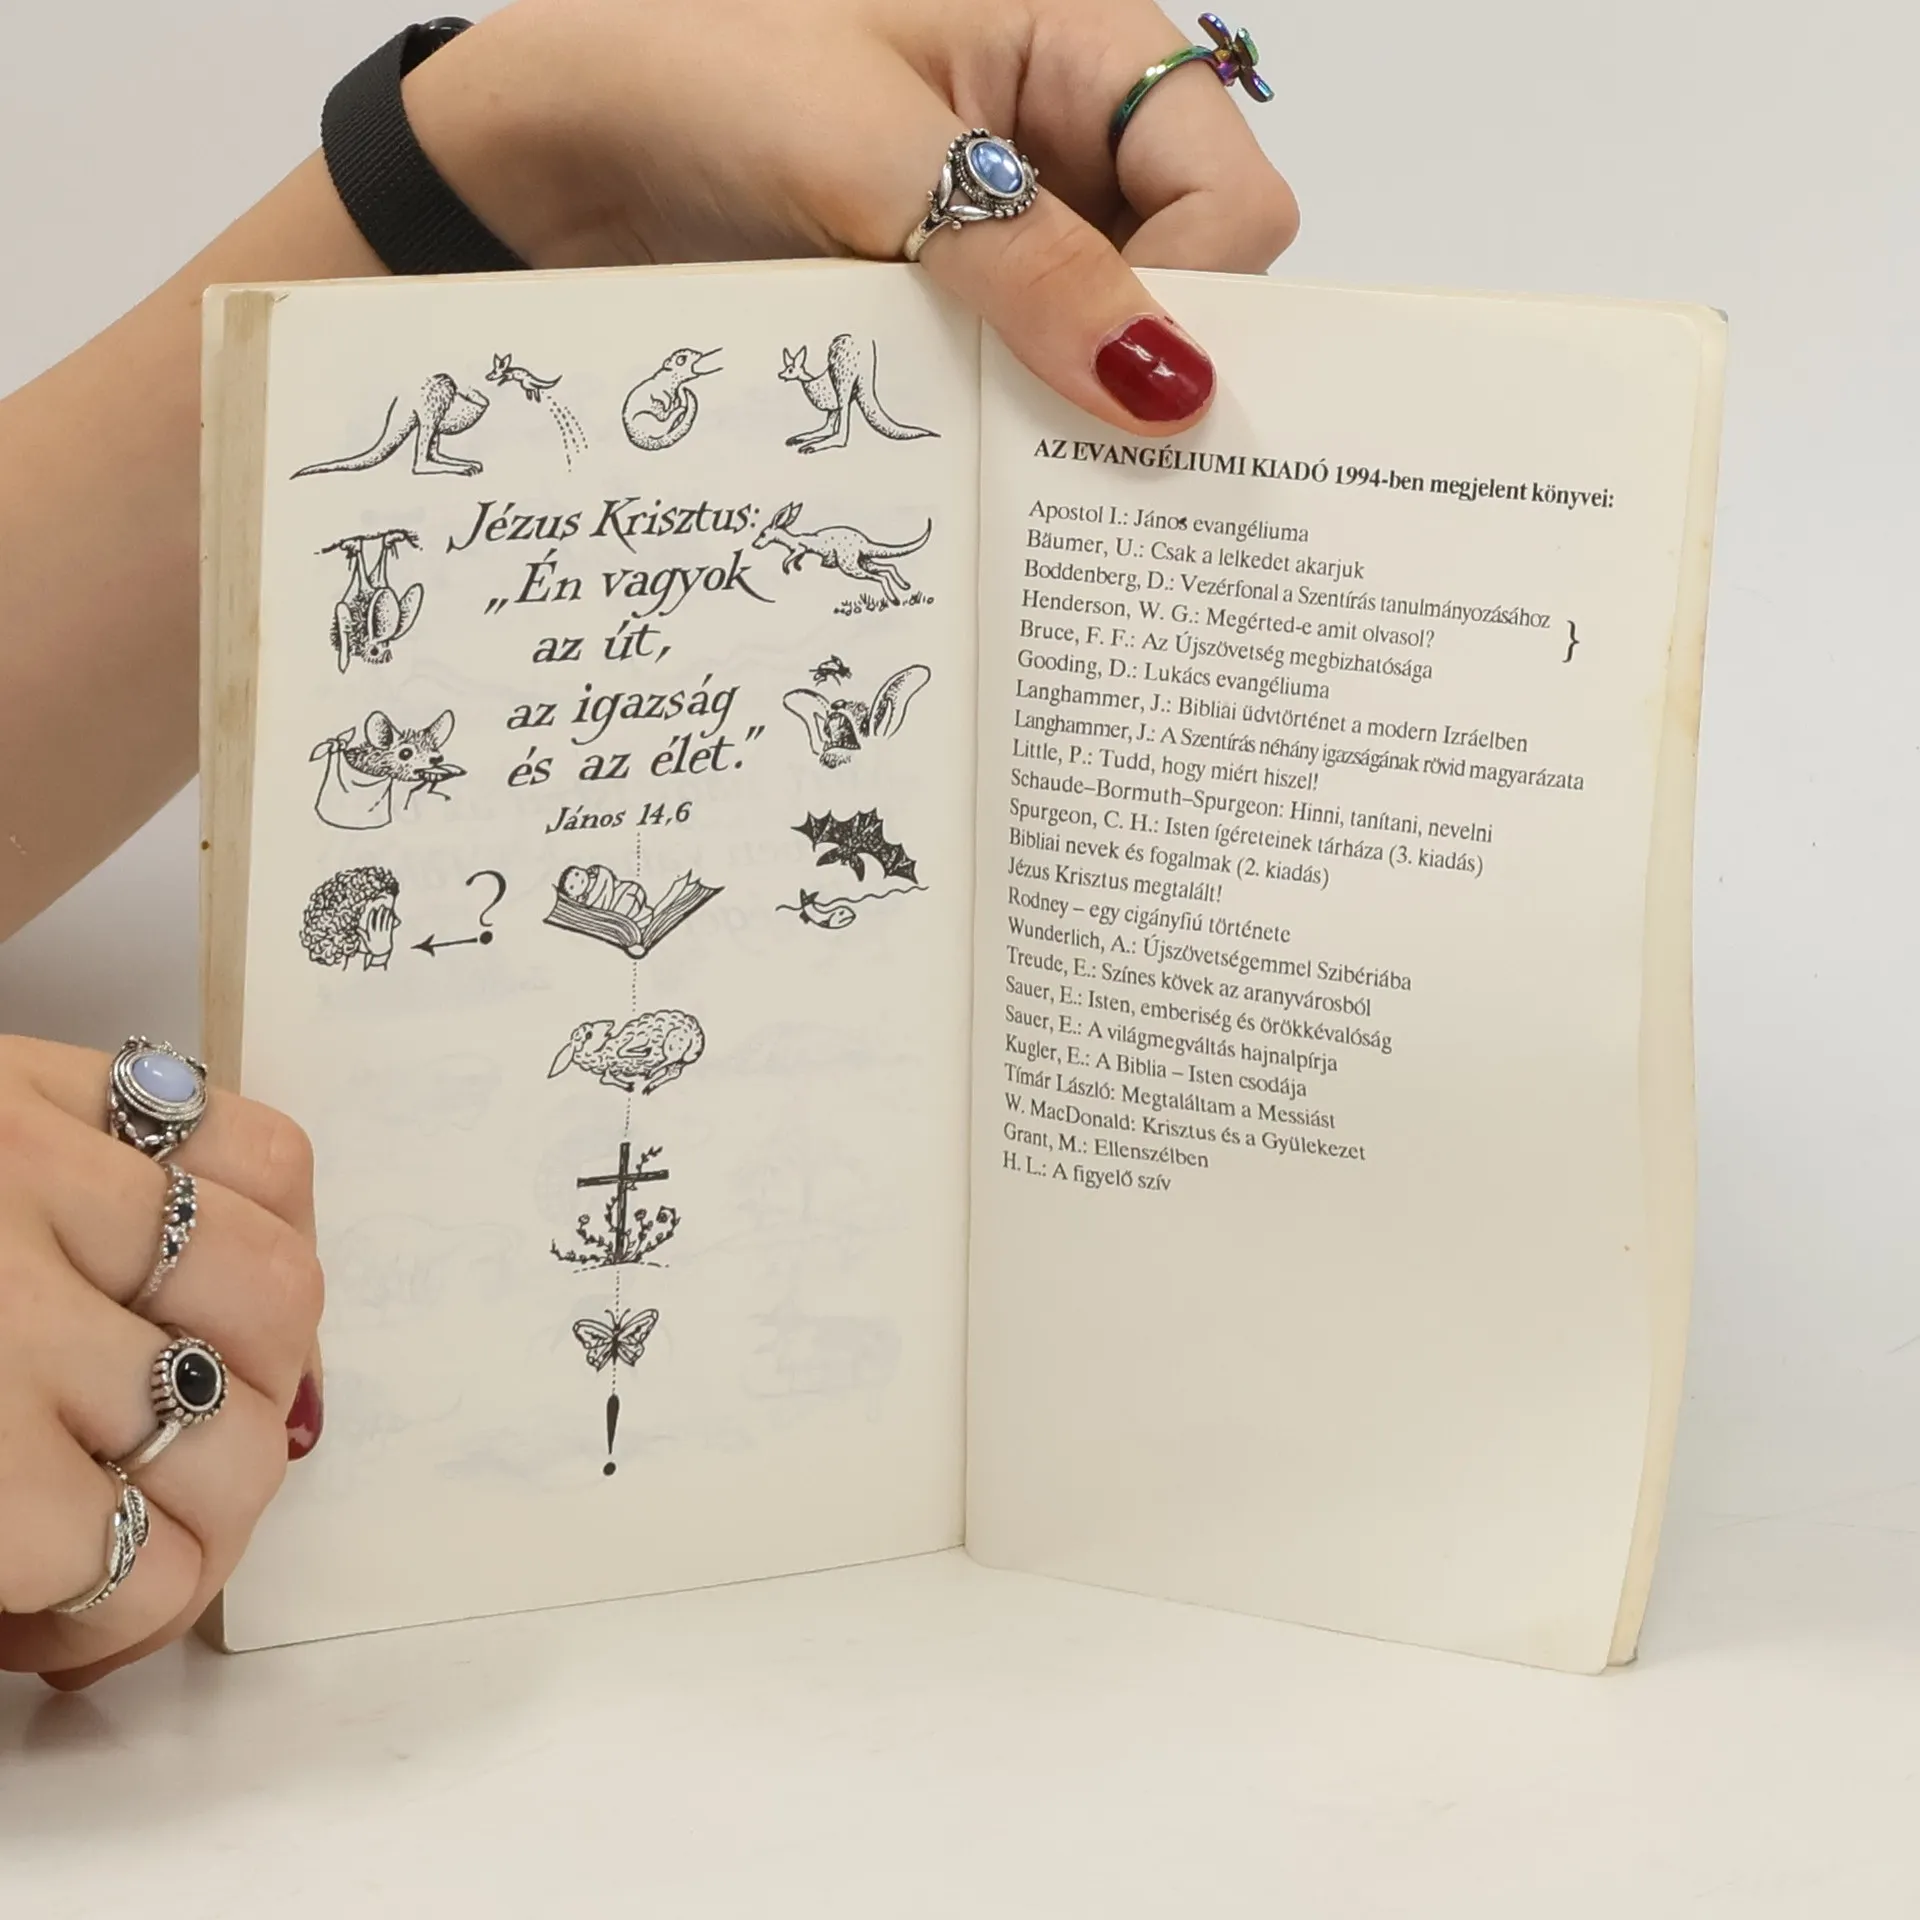 Jézus Krisztus:
„Én vagyok
az út,
az igazság
és az élet.”
János 14,6
?
!
AZ EVANGÉLIUMI KIADÓ 1994-ben megjelent könyvei:
Apostol I.: János evangéliuma
Bäumer, U.: Csak a lelkedet akarjuk
Boddenberg, D.: Vezérfonal a Szentírás tanulmányozásához
Henderson, W. G.: Megérted-e amit olvasol? }
Bruce, F. F.: Az Újszövetség megbizhatósága
Gooding, D.: Lukács evangéliuma
Langhammer, J.: Bibliai üdvtörténet a modern Izráelben
Langhammer, J.: A Szentírás néhány igazságának rövid magyarázata
Little, P.: Tudd, hogy miért hiszel!
Schaude–Bormuth–Spurgeon: Hinni, tanítani, nevelni
Spurgeon, C. H.: Isten ígéreteinek tárháza (3. kiadás)
Bibliai nevek és fogalmak (2. kiadás)
Jézus Krisztus megtalált!
Rodney – egy cigányfiú története
Wunderlich, A.: Újszövetségemmel Szibériába
Treude, E.: Színes kövek az aranyvárosból
Sauer, E.: Isten, emberiség és örökkévalóság
Sauer, E.: A világmegváltás hajnalpírja
Kugler, E.: A Biblia – Isten csodája
Tímár László: Megtaláltam a Messiást
W. MacDonald: Krisztus és a Gyülekezet
Grant, M.: Ellenszélben
H. L.: A figyelő szív